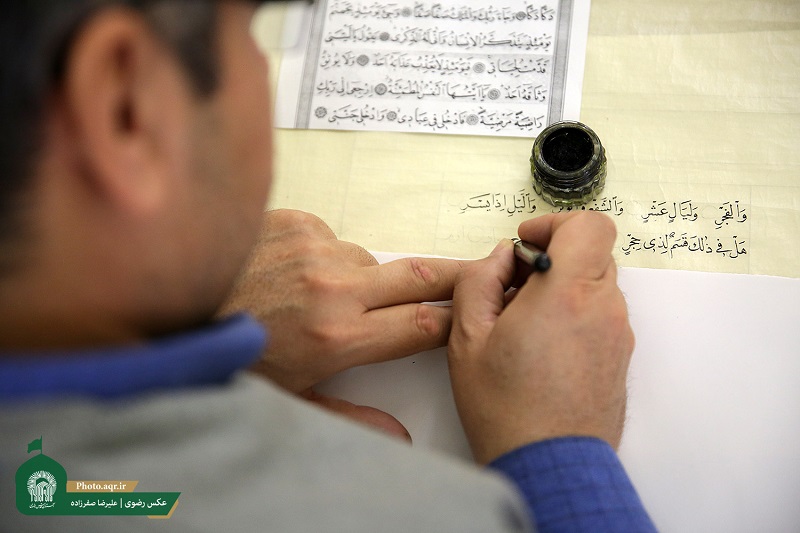 دَكًّا دَكًّا وَجَاءَ رَبُّكَ وَالْمَلَكُ صَفًّا صَفًّا وَجِيءَ يَوْمَئِذٍ بِجَهَنَّمَ
يَوْمَئِذٍ يَتَذَكَّرُ الْإِنْسَانُ وَأَنَّى لَهُ الذِّكْرَى يَقُولُ يَا لَيْتَنِي
قَدَّمْتُ لِحَيَاتِي فَيَوْمَئِذٍ لَا يُعَذِّبُ عَذَابَهُ أَحَدٌ وَلَا يُوثِقُ
وَثَاقَهُ أَحَدٌ يَا أَيَّتُهَا النَّفْسُ الْمُطْمَئِنَّةُ ارْجِعِي إِلَى رَبِّكِ
رَاضِيَةً مَرْضِيَّةً فَادْخُلِي فِي عِبَادِي وَادْخُلِي جَنَّتِي
وَٱلْفَجْرِ وَلَيَالٍ عَشْرٍ وَٱلشَّفْعِ وَٱلَّيْلِ إِذَا يَسْرِ
هَلْ فِي ذٰلِكَ قَسَمٌ لِذِي حِجْرٍ
Photo.aqr.ir
عکس رضوی | علیرضا صفرزاده